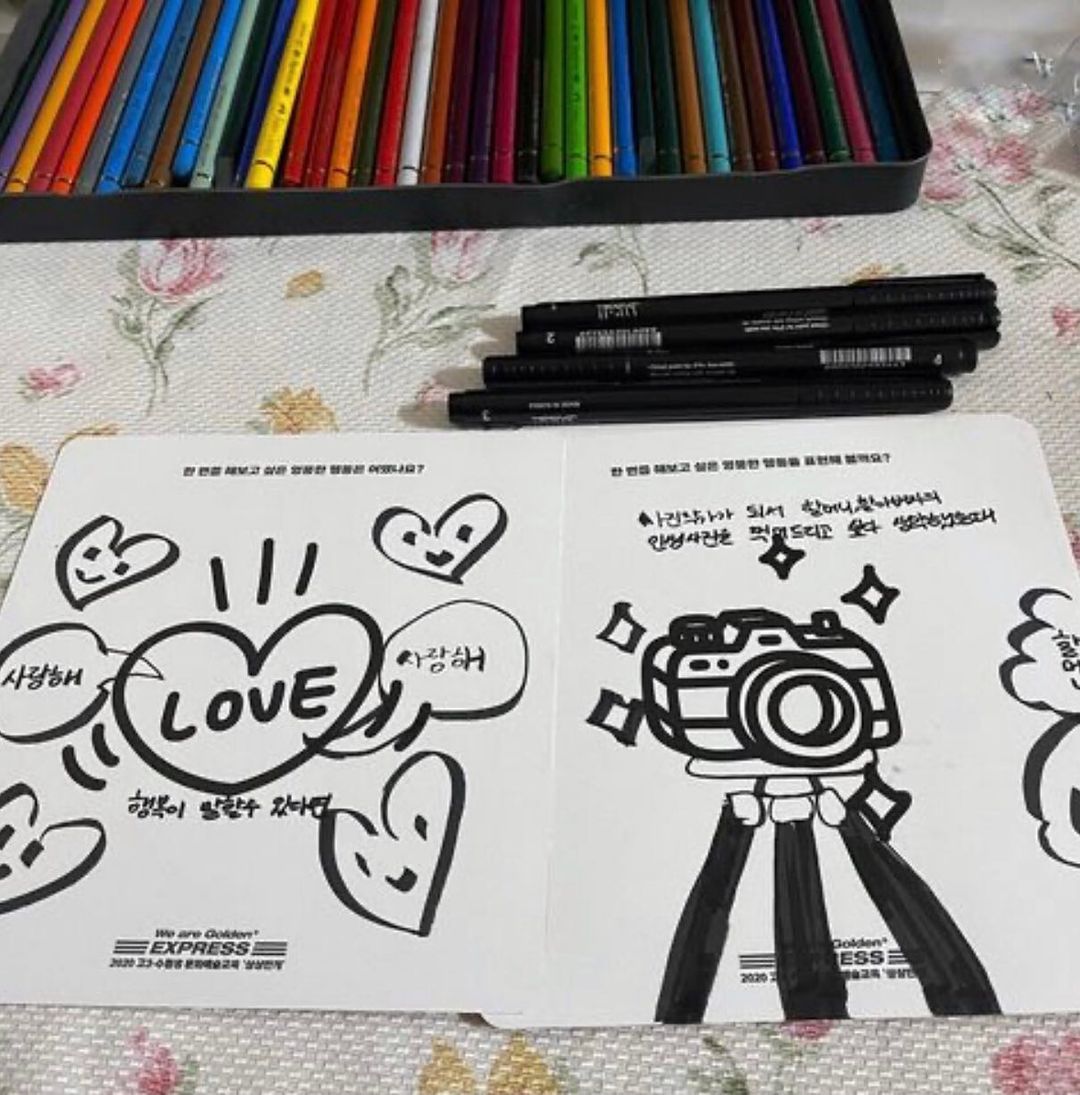 한 번쯤 해보고 싶은 엉뚱한 행동은 어떤가요?
사랑해
LOVE
사랑해
행복이 말할수 있다면
We are Golden*
EXPRESS
2020 고3·수험생 문화예술교육 '상상만개'
한 번쯤 해보고 싶은 엉뚱한 행동을 표현해 볼까요?
사진작가가 되서 할머니,할아버지의
인생사진을 찍어드리고 싶다 생각했는데
Golden*
ESS
2020 고3 예술교육 '상상만개'
할
머